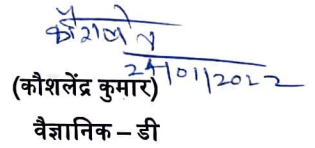 कौशलेन्द्र
24/01/2022
(कौशलेंद्र कुमार)
वैज्ञानिक – डी